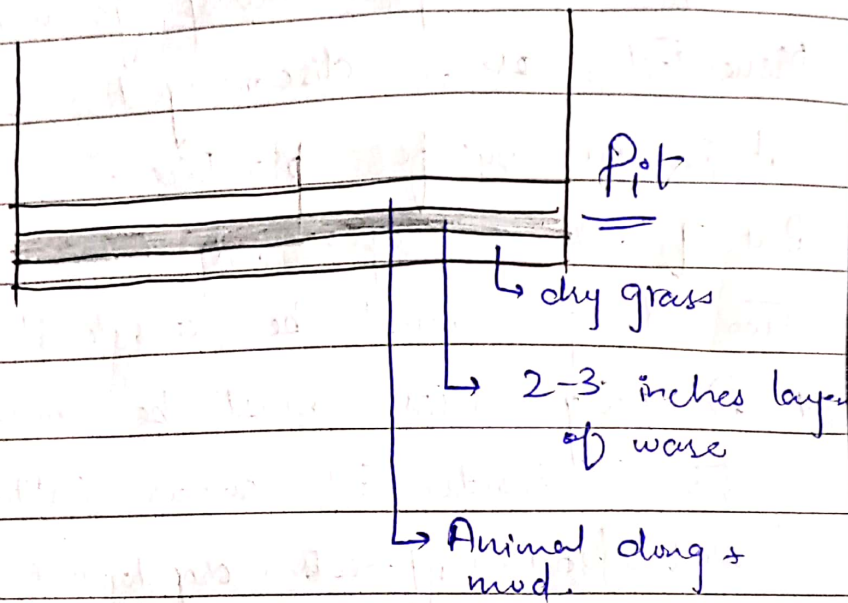 Pit
dry grass
2-3 inches layer
of wase
Animal dong +
mud.